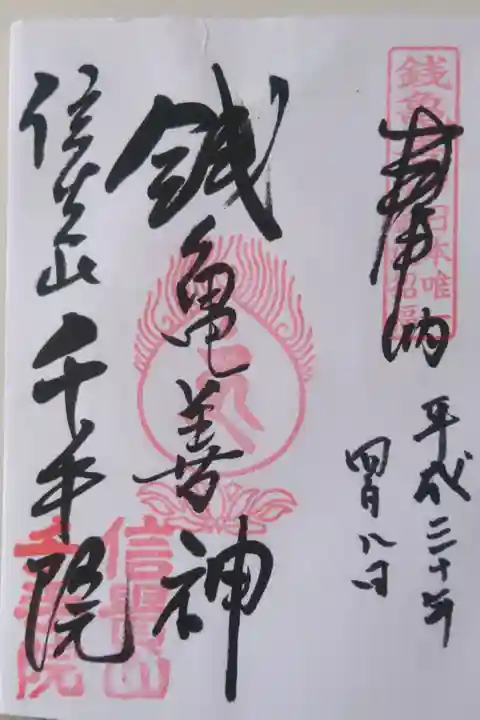 奉納
平成三十年
四月八日
銭亀善神
信貴山 千手院
銭亀
日本唯一
招福
信貴山
千手院